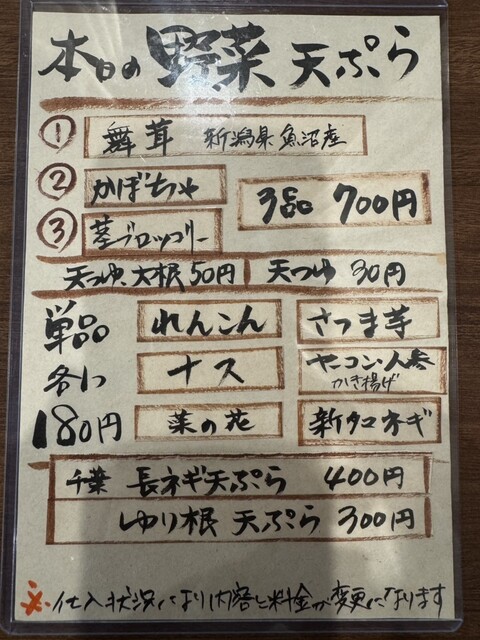 本日の野菜天ぷら
① 舞茸 新潟県魚沼産
② かぼちゃ
③ 茎ブロッコリー
3品 700円
天つゆ、大根 50円 天つゆ 30円
単品 各に 180円
れんこん さつま芋
ナス ヤーコン・人参かき揚げ
菜の花 新タマネギ
千葉 長ネギ天ぷら 400円
ゆり根 天ぷら 300円
※仕入状況により内容と料金が変更になります